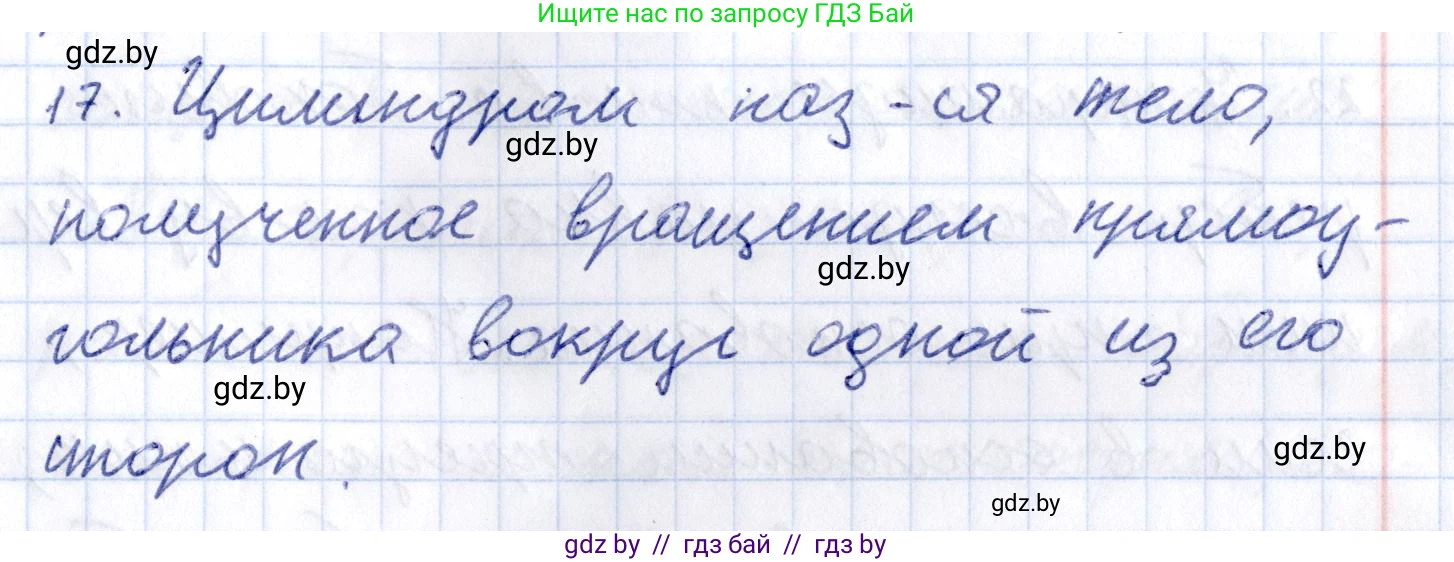 Ищите нас по запросу ГДЗ Бай
gdz.by
17. Цилиндром наз-ся тело,
gdz.by
полученное вращением прямоу-
gdz.by
гольника вокруг одной из его
gdz.by
сторон.
gdz.by
gdz.by
gdz by // гдз бай // гдз by